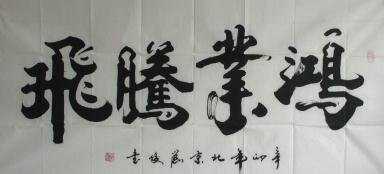 鴻業騰飛
辛卯年北京
書